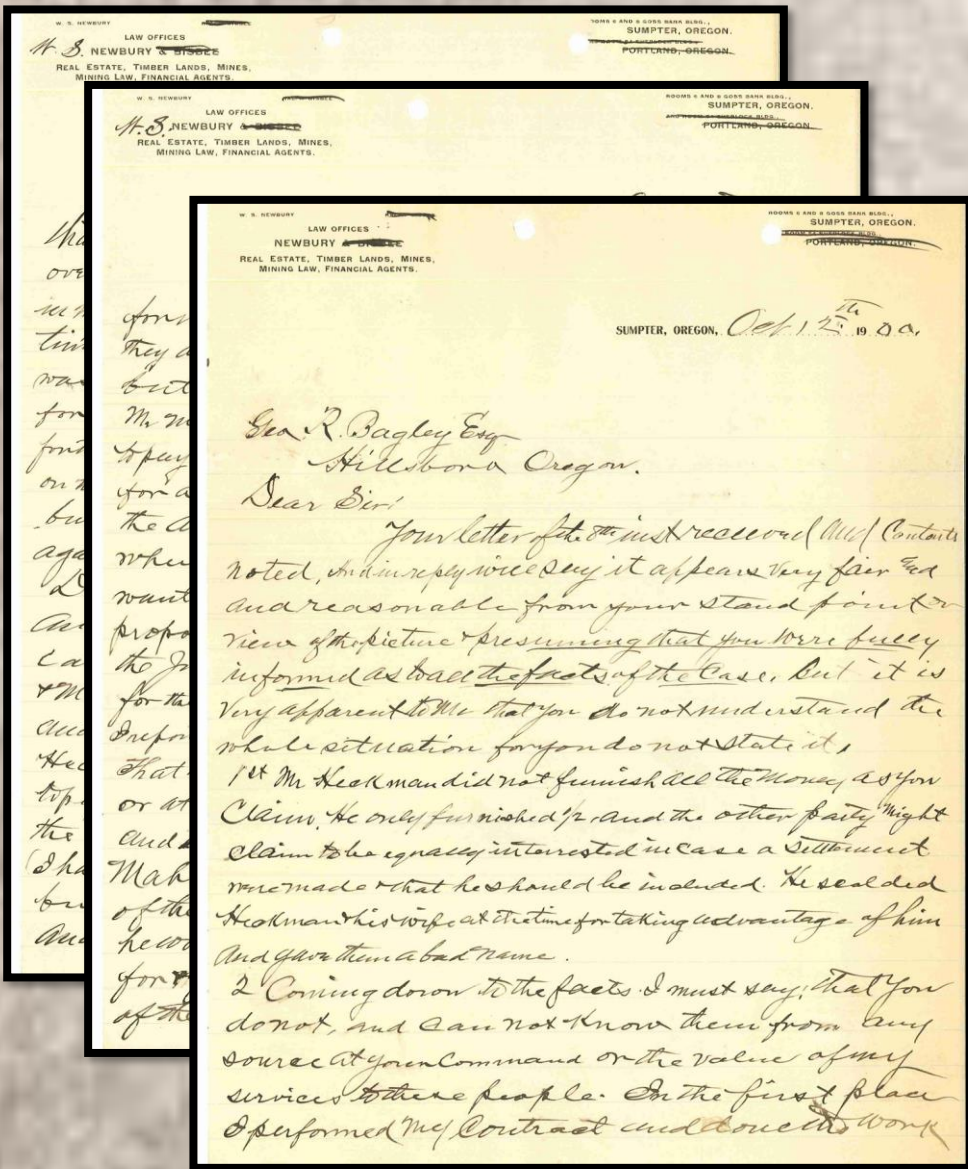 W. S. NEWBURY
LAW OFFICES
W. S. NEWBURY & BISBEE
REAL ESTATE, TIMBER LANDS, MINES,
MINING LAW, FINANCIAL AGENTS.
ROOMS 5 AND 6 GOSS BANK BLDG.,
SUMPTER, OREGON.
PORTLAND, OREGON.
over
tim
was
for
on
bu
aga
an
ca
top
the
I ha
W. S. NEWBURY
LAW OFFICES
W. S. NEWBURY & BISBEE
REAL ESTATE, TIMBER LANDS, MINES,
MINING LAW, FINANCIAL AGENTS.
ROOMS 5 AND 6 GOSS BANK BLDG.,
SUMPTER, OREGON.
PORTLAND, OREGON.
they a
but
Mr M
to pay
for a
the a
when
want
propo
the Ju
for the
I repor
That
or at
and
Mak
of the
he wo
for
of the
W. S. NEWBURY
LAW OFFICES
NEWBURY & BISBEE
REAL ESTATE, TIMBER LANDS, MINES,
MINING LAW, FINANCIAL AGENTS.
ROOMS 5 AND 6 GOSS BANK BLDG.,
SUMPTER, OREGON.
PORTLAND, OREGON.
SUMPTER, OREGON, Oct 12th 1900.
Geo. R. Bagley Esq
Hillsboro Oregon.
Dear Sir:
Your letter of the 8th inst received (and) Contents
noted, And in reply will say it appears very fair
and reasonable from your stand point
view of the picture & presuming that you were fully
informed as to all the facts of the Case. But it is
very apparent to Me that you do not understand the
whole situation for you do not state it,
1st Mr Heckman did not furnish all the Money as you
Claim. He only furnished 1/2, and the other party might
claim to be equally interested in case a settlement
were made & that he should be included. He scolded
Heckman & his wife at the time for taking advantage of him
and gave them a bad name.
2 Coming down to the facts. I must say; that you
do not, and can not Know them from any
source at your Command or the value of my
services to these people. In the first place
I performed My Contract and done the work